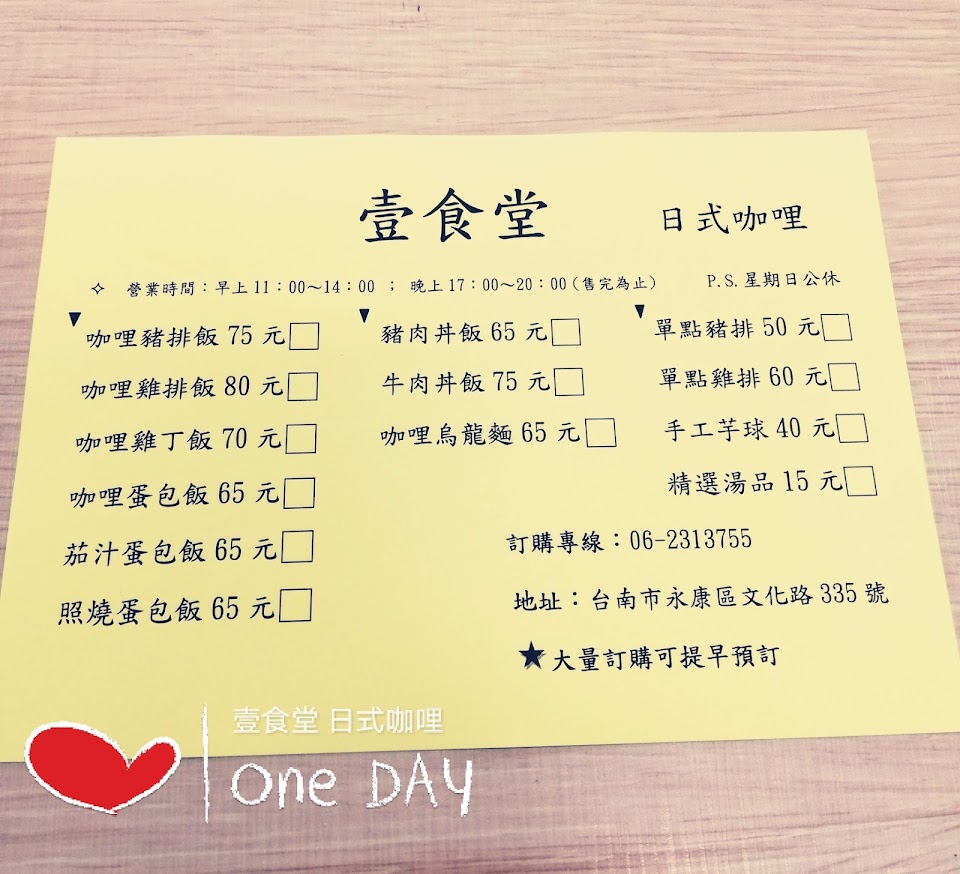 壹食堂 日式咖哩
✧ 營業時間：早上11：00～14：00 ； 晚上17：00～20：00(售完為止) P.S.星期日公休
咖哩豬排飯 75 元□
咖哩雞排飯 80 元□
咖哩雞丁飯 70 元□
咖哩蛋包飯 65 元□
茄汁蛋包飯 65 元□
照燒蛋包飯 65 元□
豬肉丼飯 65 元□
牛肉丼飯 75 元□
咖哩烏龍麵 65 元□
單點豬排 50 元□
單點雞排 60 元□
手工芋球 40 元□
精選湯品 15 元□
訂購專線：06-2313755
地址：台南市永康區文化路 335 號
★大量訂購可提早預訂
壹食堂 日式咖哩
One DAY